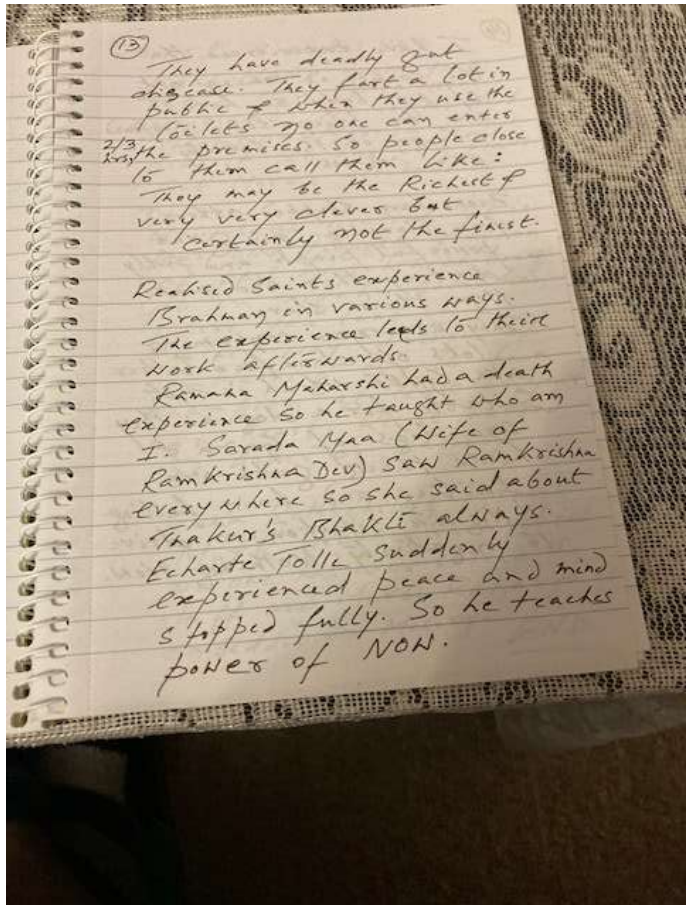 (13)
They have deadly gut
disease. They fart a lot in
public & when they use the
toilets no one can enter
2/3 hrs, the premises. So people close
to them call them like:
They may be the Richest &
very very clever but
certainly not the finest.
Realised Saints experience
Brahman in various ways.
The experience leads to their
work afterwards.
Ramana Maharshi had a death
experience so he taught who am
I. Sarada Maa (Wife of
Ramkrishna Dev) saw Ramkrishna
everywhere so she said about
Thakur's Bhakti always.
Echarte Tolle suddenly
experienced peace and mind
stopped fully. So he teaches
power of NOW.